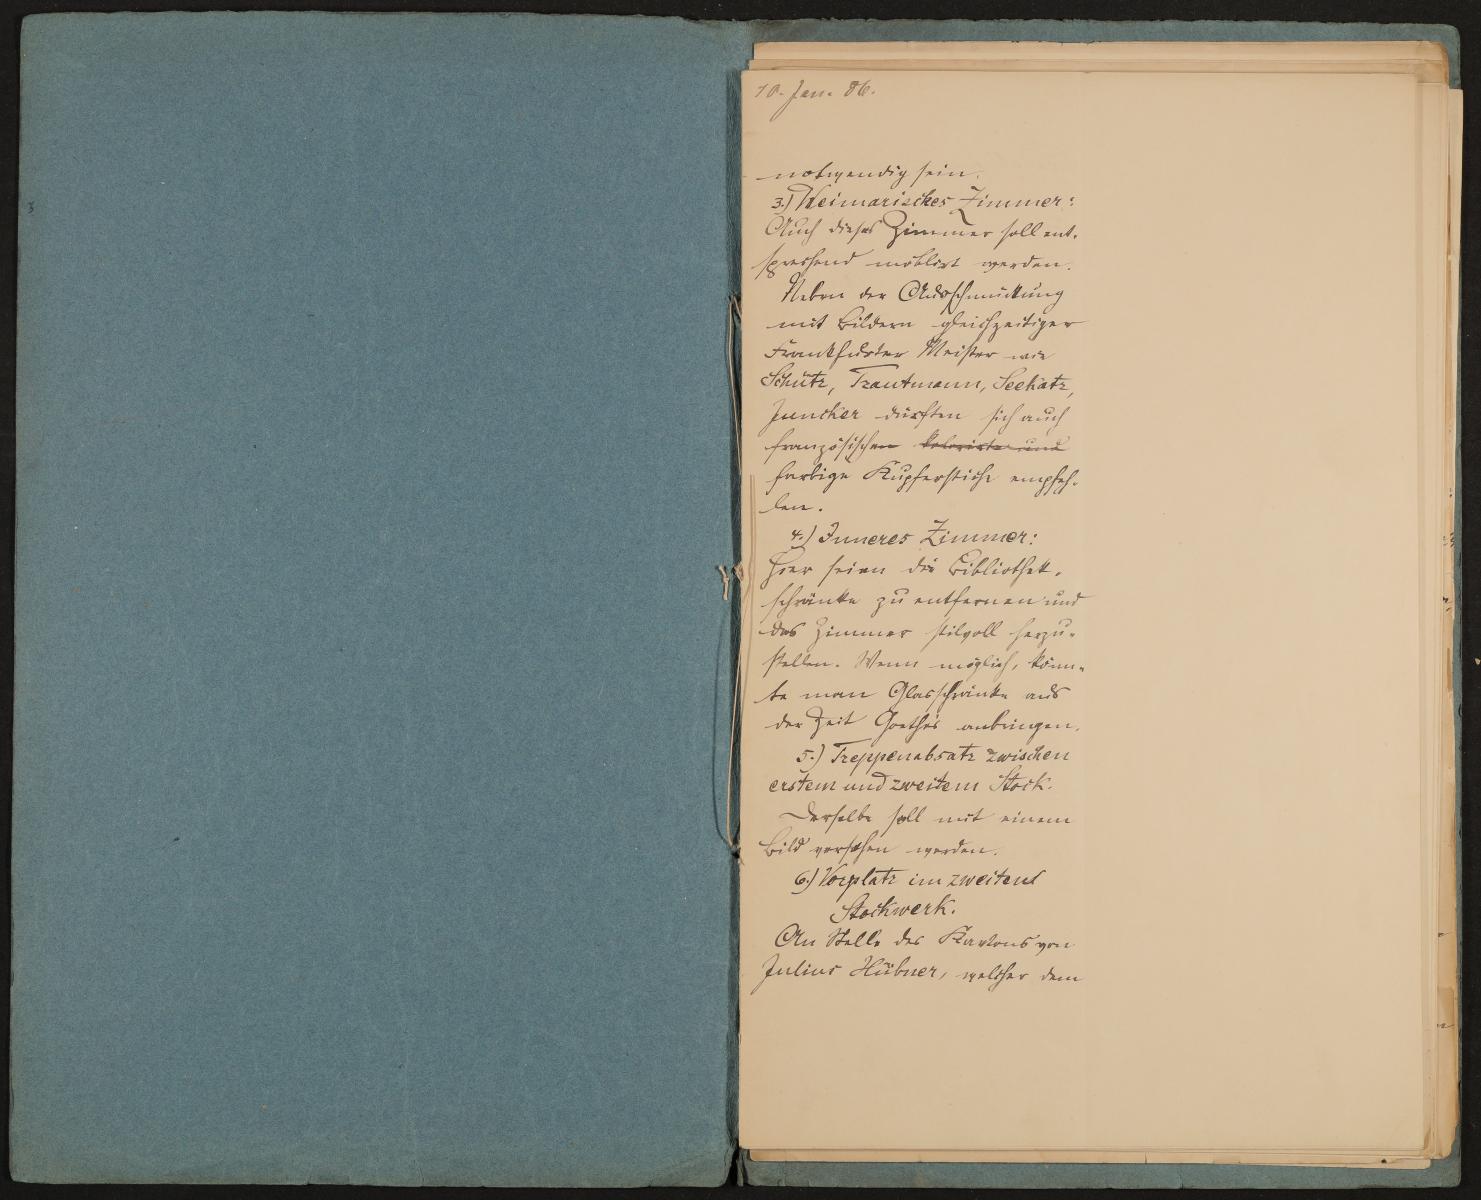 10. Jan. 86.
notwendig sein.
3.) Weimarisches Zimmer:
Auch dieses Zimmer soll ent-
sprechend möblirt werden.
Neben der Ausschmückung
mit Bildern gleichzeitiger
Frankfurter Meister wie
Schütz, Trautmann, Seekatz,
Juncker dürften sich auch
französischen kolorirte und
farbige Kupferstiche empfeh-
len.
4.) Inneres Zimmer:
Hier seien die Bibliothek-
schränke zu entfernen und
das Zimmer stilvoll herzu-
stellen. Wenn möglich, könn-
te man Glasschränke aus
der Zeit Goethes anbringen.
5.) Treppenabsatz zwischen
erstem und zweitem Stock.
Derselbe soll mit einem
Bild versehen werden.
6.) Vorplatz im zweitens
Stockwerk.
An Stelle des Kartons von
Julius Hübner, welcher dem